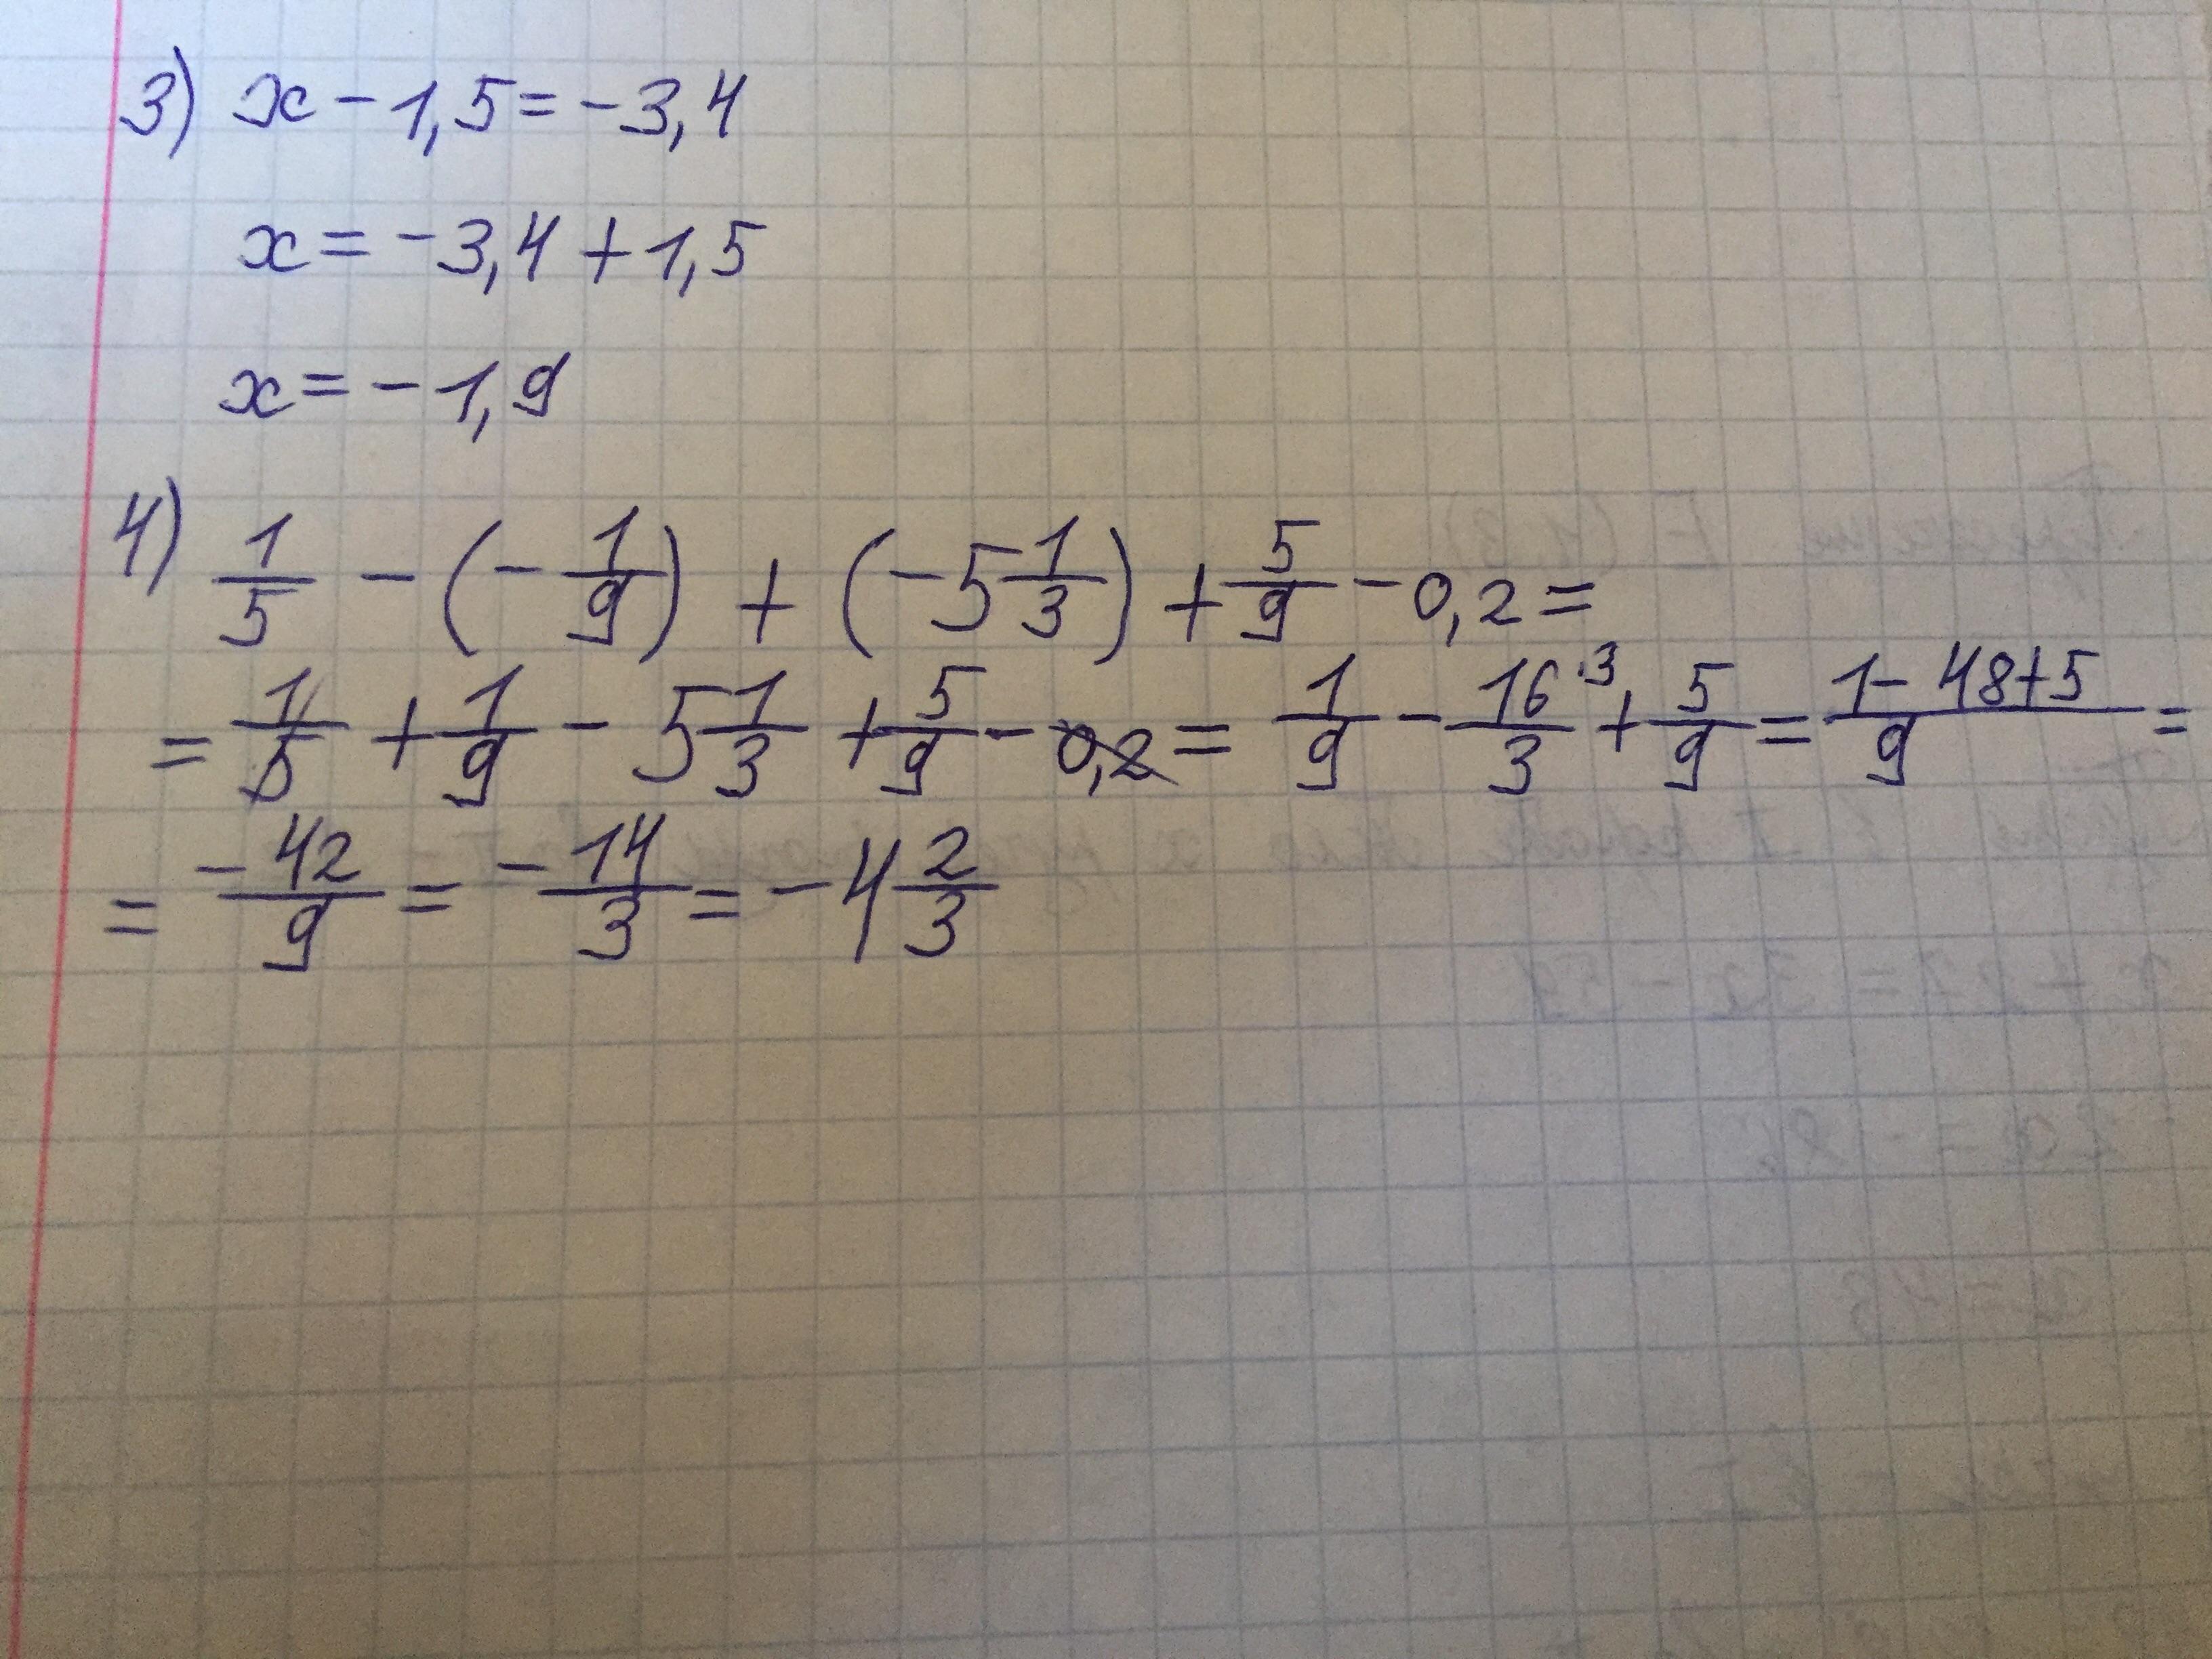 3) x - 1,5 = -3,4
x = -3,4 + 1,5
x = -1,9
4) 1/5 - (-1/9) + (-5 1/3) + 5/9 - 0,2 =
= 1/5 + 1/9 - 5 1/3 + 5/9 - 0,2 = 1/9 - 16/3 ·3 + 5/9 = (1 - 48 + 5)/9 =
= -42/9 = -14/3 = -4 2/3